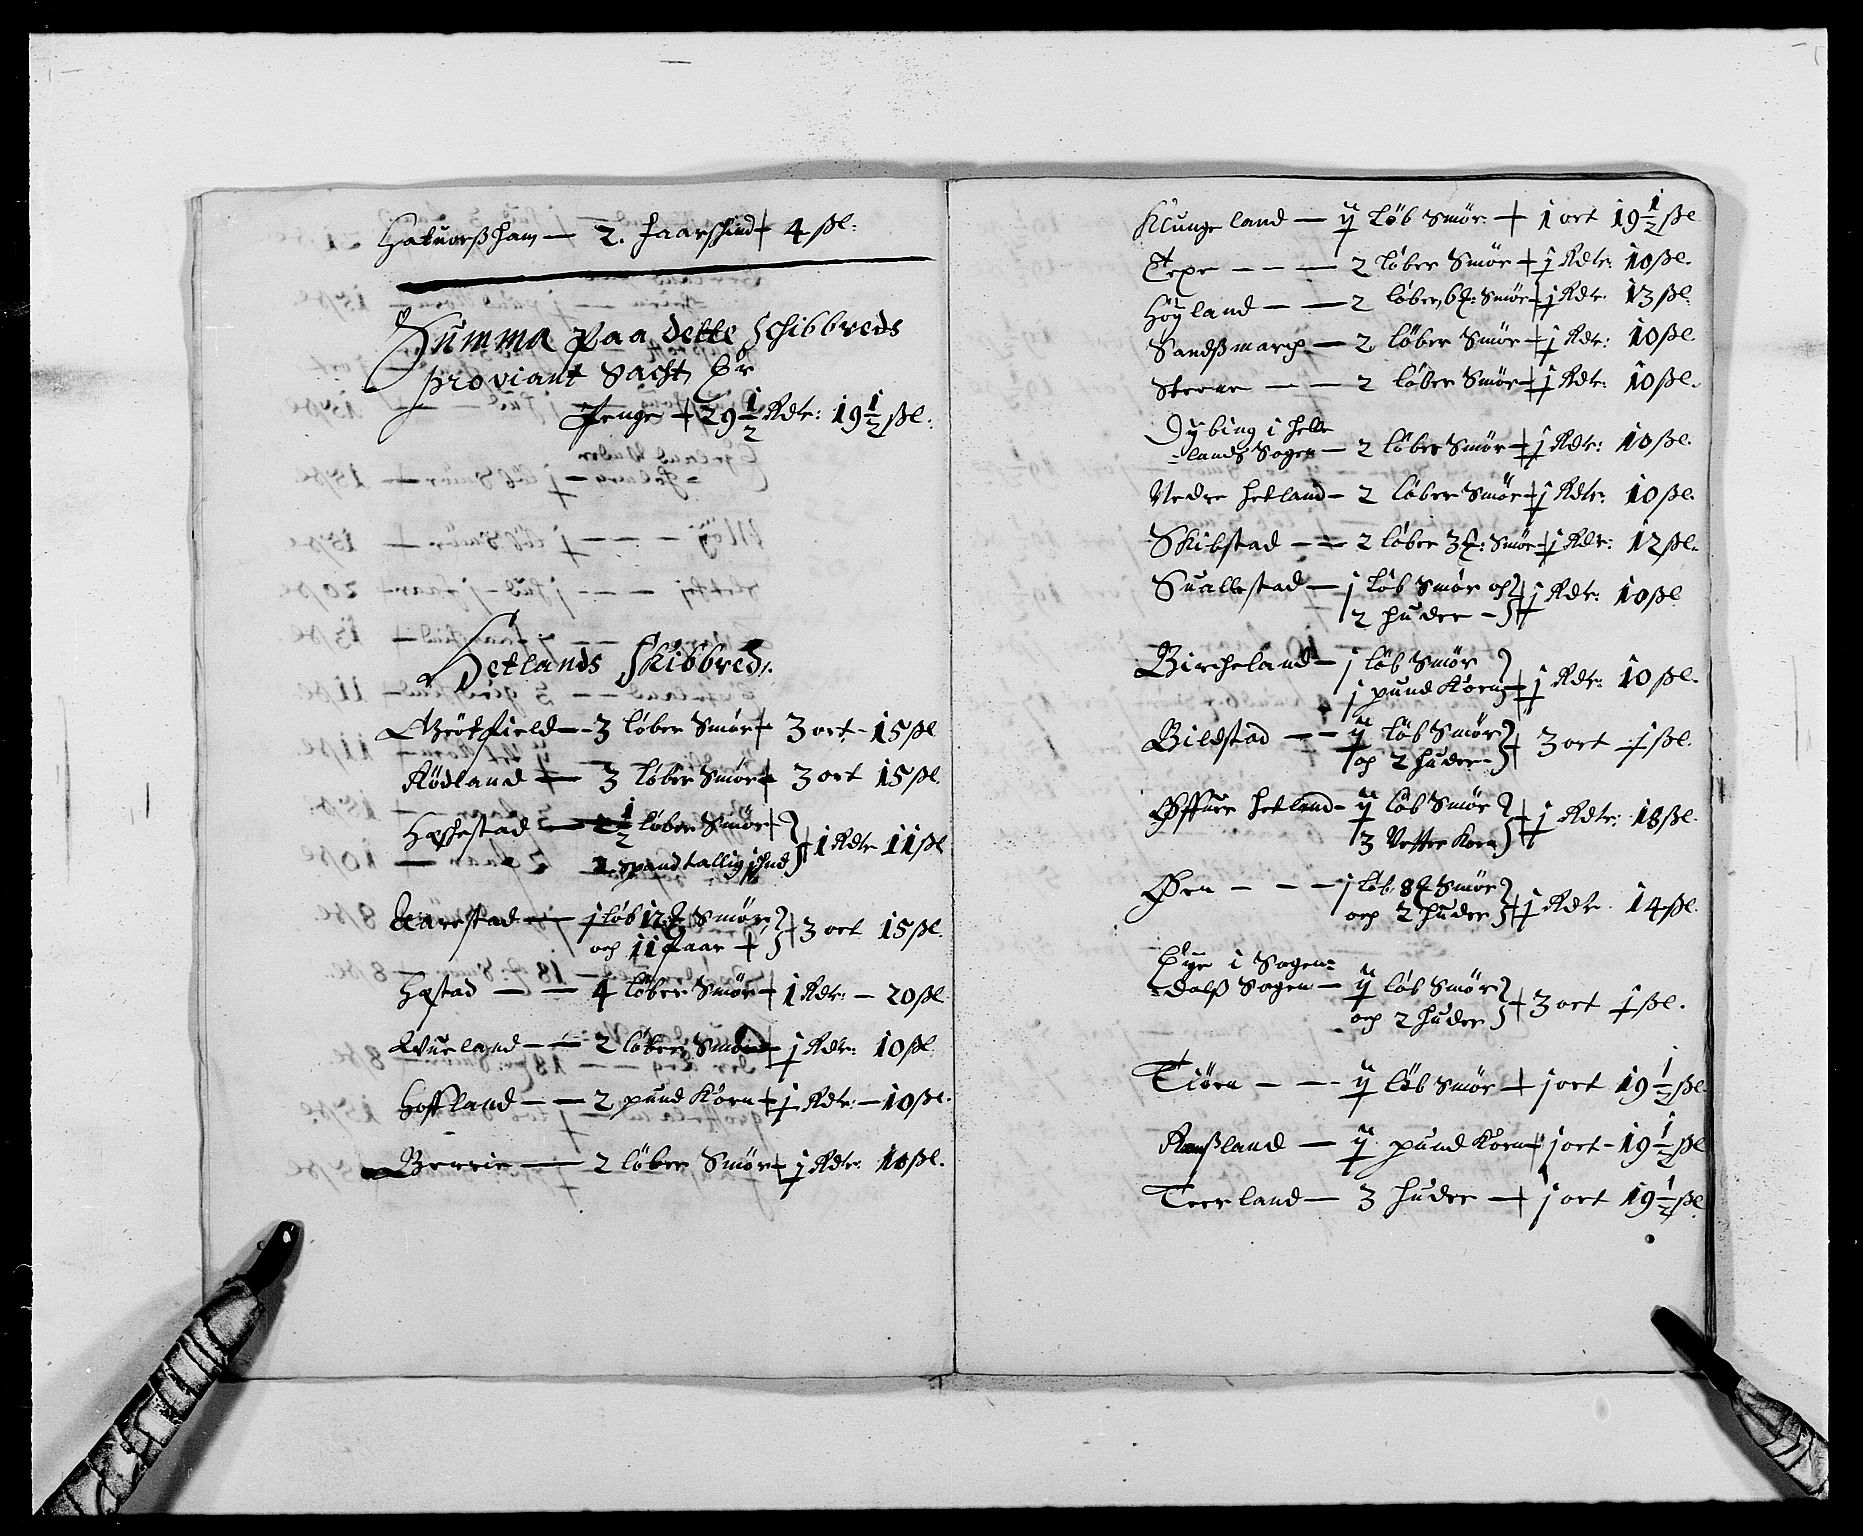 Hatuorßham — 2. faarschind + 4 ßl:
Summa paa dette Schibbreds
proviant Sacht, Er
Penge + 29½ Rdr: 19½ ßl:
Hetlands Skibbred:
Grötfield — 3 löber Smör + 3 ort — 15 ßl
Rödland — 3 löber Smör + 3 ort 15 ßl
Hæsstad — 1½ löber Smör
1 spandtallig hud + 1 Rdr 11 ßl
Aarestad — j löb 12 ℔ Smör
och 11 faar + 3 ort 15 ßl.
Hæstad — 4 löber Smör + 1 Rdr: — 20 ßl
Aueland — 2 löber Smör + j Rdr: 10 ßl
Hoffland — 2 pund Körn + j Rdr: — 10 ßl.
Berrie — 2 löber Smör + j Rdr: 10 ßl.
Klungeland — ÿ löb Smör + 1 ort 19½ ßl
Epe — 2 löber Smör + j Rdr: 10 ßl.
Höyland — 2 löber, 6 ℔: Smör + j Rdr: 13 ßl.
Sandßmarch — 2 löber Smör + j Rdr: 10 ßl.
Steene — 2 löber Smör + j Rdr: 10 ßl.
Dybing i Helle
lands Sogen — 2 löber Smör + j Rdr: 10 ßl.
Nedre Hetland — 2 löber Smör + j Rdr: 10 ßl.
Skibstad — 2 löber 3 ℔: Smör + j Rdr: 12 ßl.
Suallestad — j löb Smör och
2 huder — + j Rdr: 10 ßl
Bircheland — j löb Smör
j pund Körn + j Rdr: 10 ßl.
Bilstad — ÿ löb Smör
och 2 huder — + 3 ort j ßl.
Öffuer Hetland — ÿ löb Smör
3 Vetter Korn + j Rdr: 18 ßl.
Øen — j löb 8 ℔ Smör
och 2 huder + j Rdr 14 ßl.
Eye i Sogen=
=dalß Sogen — ÿ löb Smör
och 2 huder + 3 ort j ßl.
Tiörn — ÿ löb Smör + j ort 19½ ßl
Ramßland — ÿ pund Korn + j ort — 19½ ßl
Teerland — 3 huder + j ort 19½ ßl.